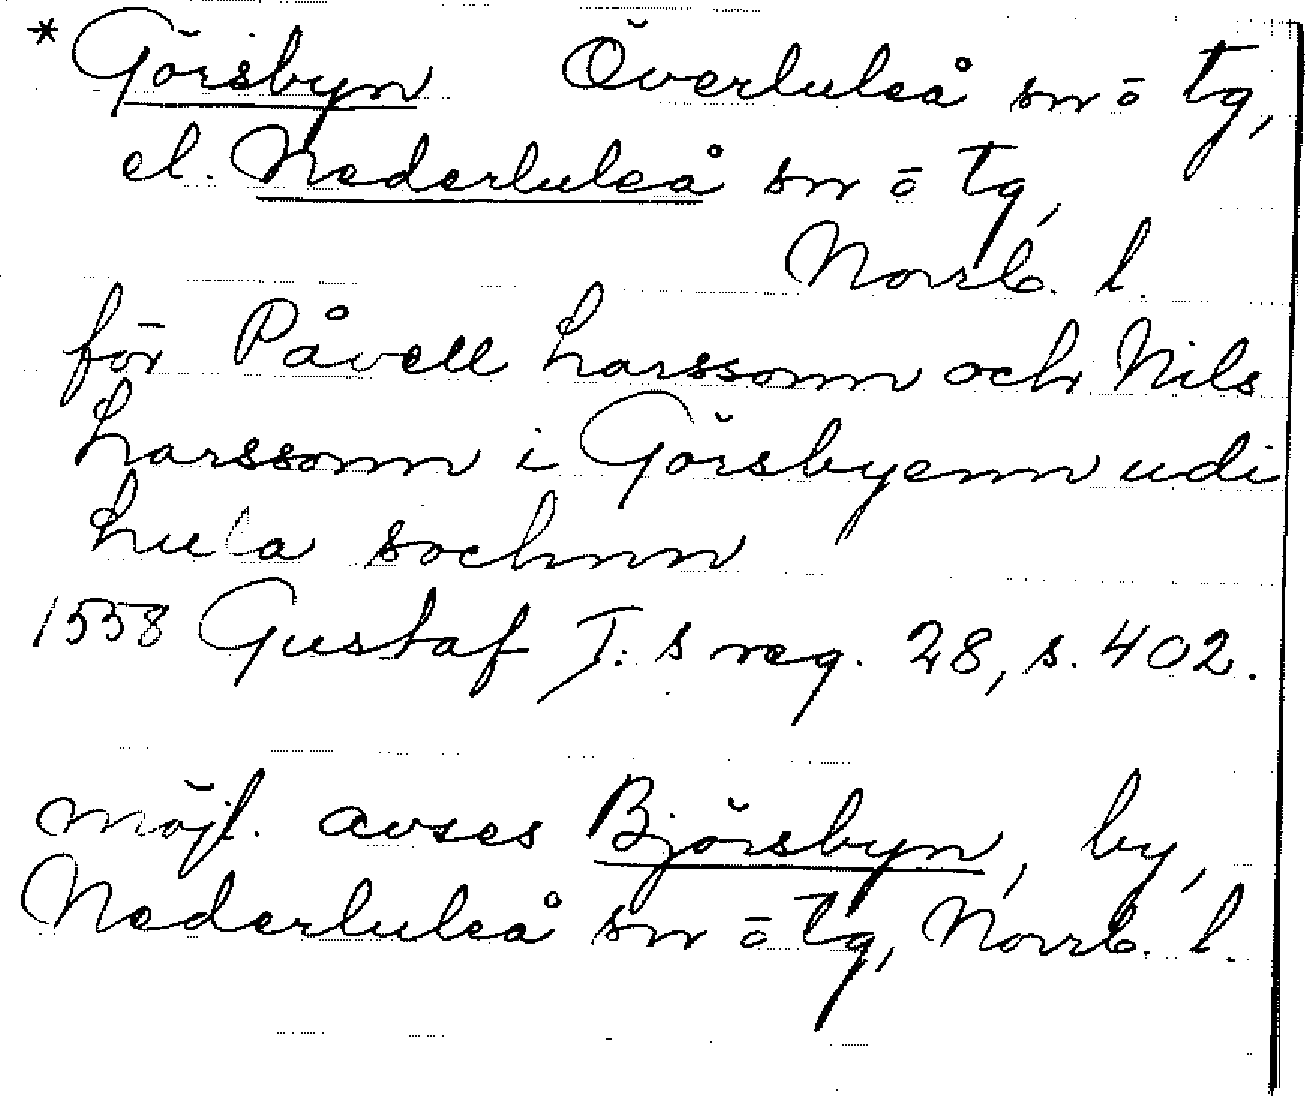 * Görsbyn Överluleå sn o tg,
el. Nederluleå sn o tg,
Norrb. l.
för Påvell Larssonn och Nils
Larssonn i Görsbyenn udi
Lula sochnn
1558 Gustaf I:s reg. 28, s. 402.
möjl. avses Björsbyn, by,
Nederluleå sn o tg, Norrb. l.